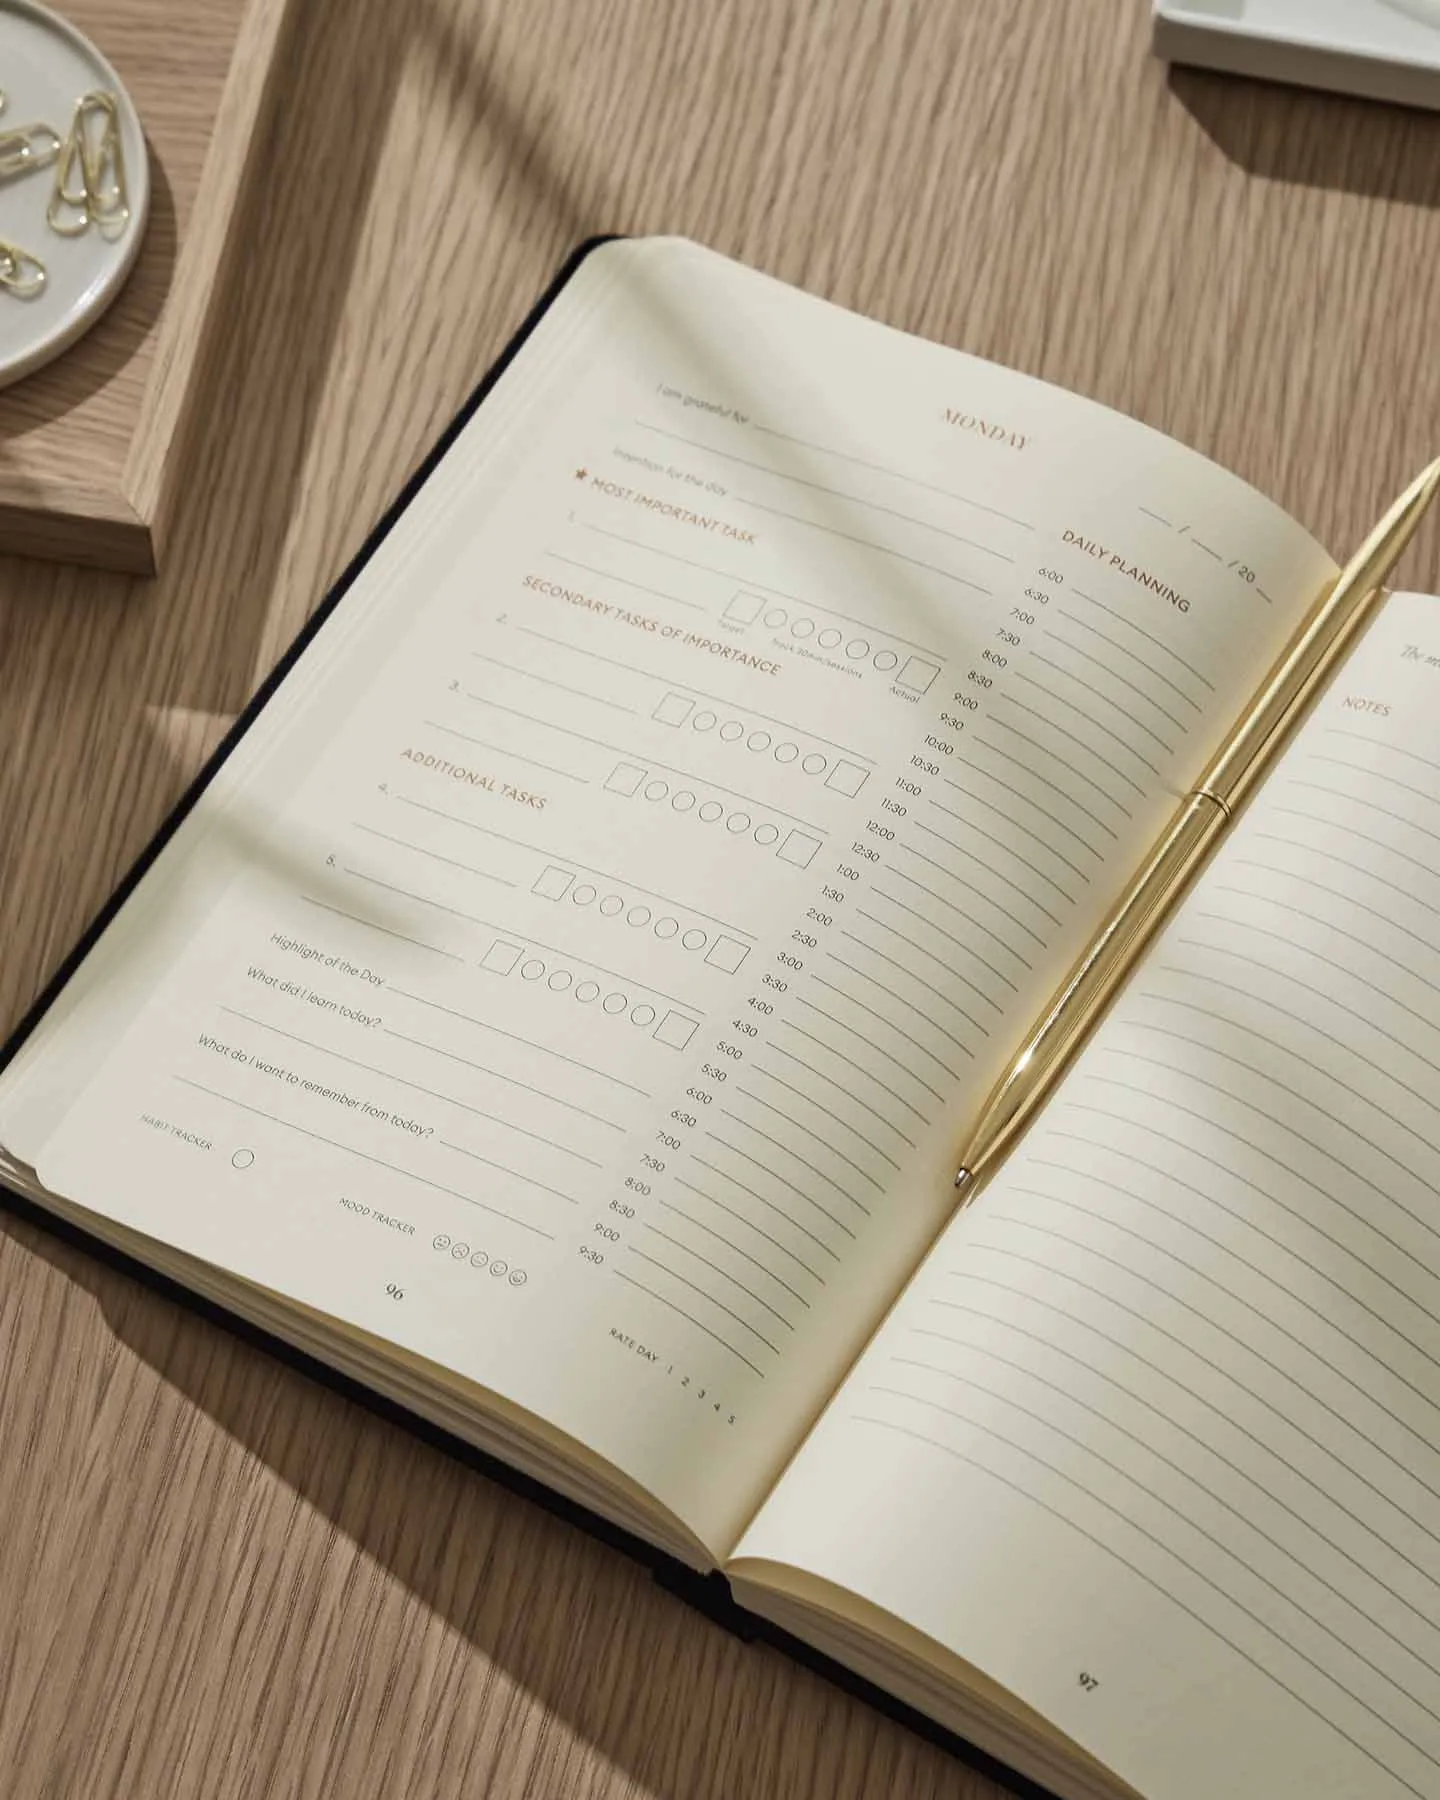 MONDAY
__ / __ / 20__
I am grateful for
Intention for the day
★ MOST IMPORTANT TASK
1.
Target
Track 30min/sessions
Actual
SECONDARY TASKS OF IMPORTANCE
2.
3.
ADDITIONAL TASKS
4.
5.
Highlight of the Day
What did I learn today?
What do I want to remember from today?
HABIT TRACKER
MOOD TRACKER
96
DAILY PLANNING
6:00
6:30
7:00
7:30
8:00
8:30
9:00
9:30
10:00
10:30
11:00
11:30
12:00
12:30
1:00
1:30
2:00
2:30
3:00
3:30
4:00
4:30
5:00
5:30
6:00
6:30
7:00
7:30
8:00
8:30
9:00
9:30
RATE DAY 1 2 3 4 5
The
NOTES
97